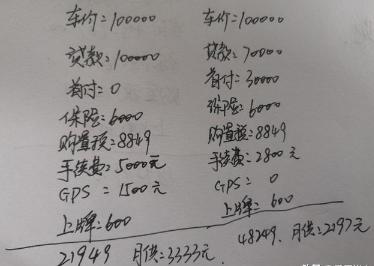 车价=100000
贷款=100000
首付=0
保险=6000
购置税=8849
手续费=5000元
GPS=1500元
上牌=600
21949 月供=3333元
车价=100000
贷款=70000
首付=30000
保险=6000
购置税=8849
手续费=2800元
GPS=0
上牌=600
48249、月供=2197元